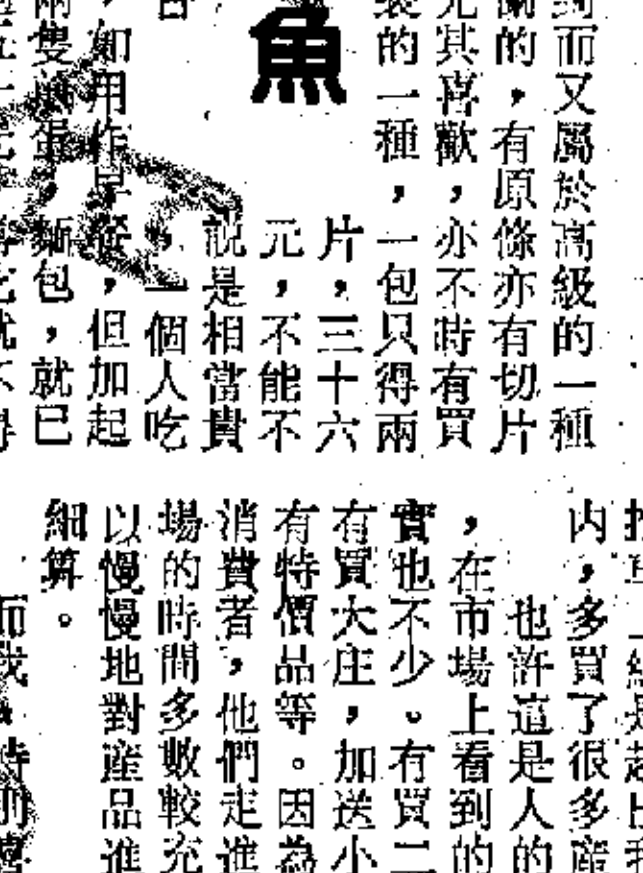 魚
到而又屬於高級的一種
的,有原條亦有切片
其喜歡,亦不時有買
的一種,一包只得兩
片,三十六
元,不能不
說是相當貴
,一個人吃
,如用作早餐,但加起
兩隻蛋,麵包,就已
內,多買了很多產
也許這是人的
,在市場上看到的
實也不少。有買二
有買大庄,加送小
有特價品等。因為
消費者,他們走進
場的時間多數較充
以慢慢地對產品進
細算。
而我